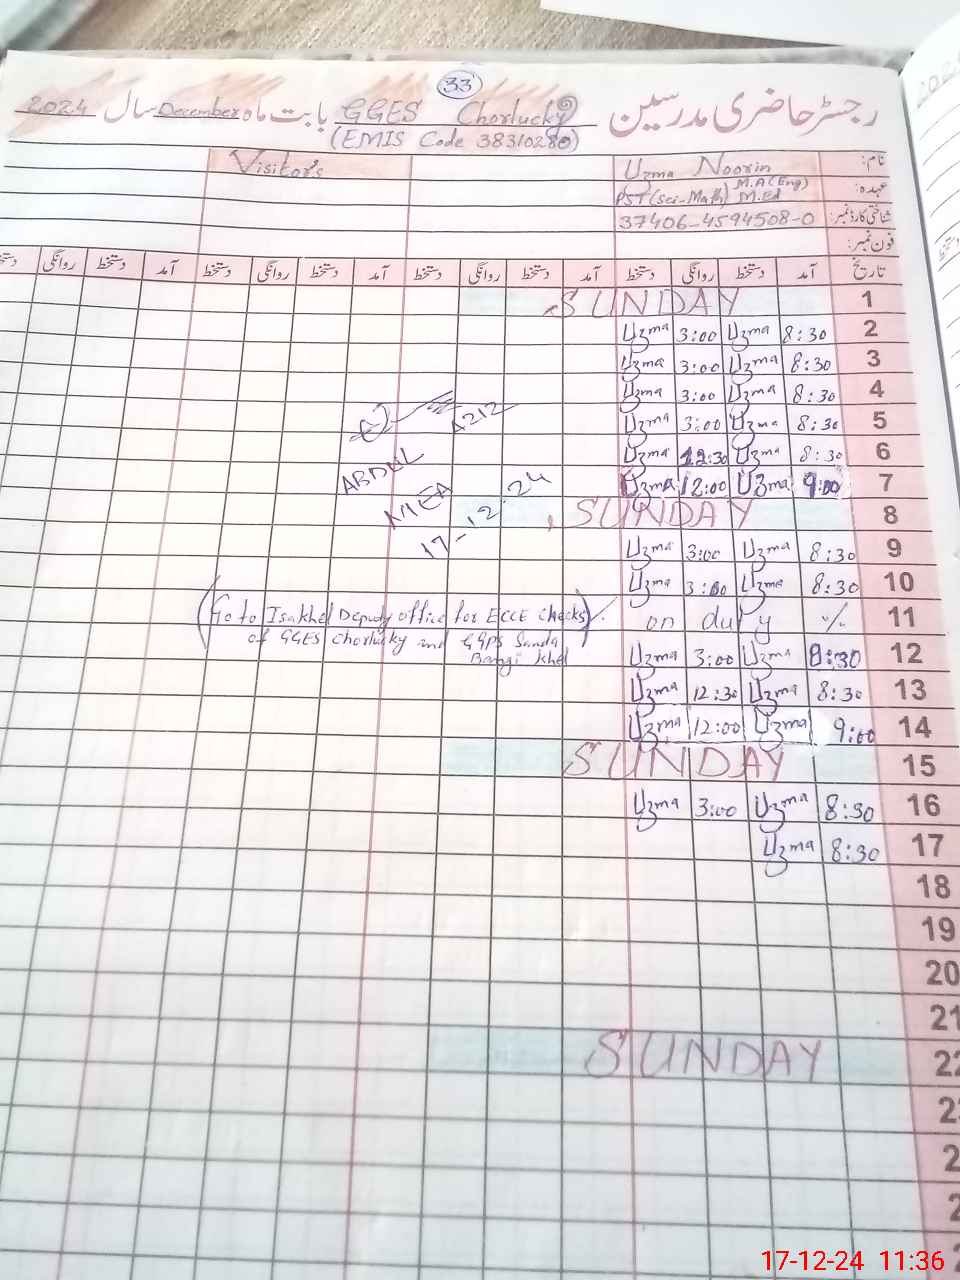 33
رجسٹر حاضری مدرسین GGES Chorlucky بابت ماہ December سال 2024
(EMIS Code 38310280)
نام: Uzma Noorin Visitors
عہدہ: PST (Sci-Math) M.A (Eng) M.Ed
شناختی کارڈ نمبر: 37406-4594508-0
فون نمبر:
تاریخ آمد دستخط روانگی دستخط آمد دستخط روانگی دستخط آمد دستخط روانگی دستخط آمد دستخط روانگی دستخط
1 SUNDAY
2 8:30 Uzma 3:00 Uzma
3 8:30 Uzma 3:00 Uzma
4 8:30 Uzma 3:00 Uzma
5 8:30 Uzma 3:00 Uzma
6 8:30 Uzma 12:30 Uzma
7 9:00 Uzma 12:00 Uzma
8 SUNDAY
9 8:30 Uzma 3:00 Uzma
10 8:30 Uzma 3:00 Uzma
11 on duty %
12 8:30 Uzma 3:00 Uzma
13 8:30 Uzma 12:30 Uzma
14 9:00 Uzma 12:00 Uzma
15 SUNDAY
16 8:30 Uzma 3:00 Uzma
17 8:30 Uzma
18
19
20
21
22 SUNDAY
4212
ABDUL
MEA
17-12-24
(Go to Isakhel Deputy office for ECCE checks
of GGES Chorlucky and GGPS Sanda
Bangi khel
17-12-24 11:36